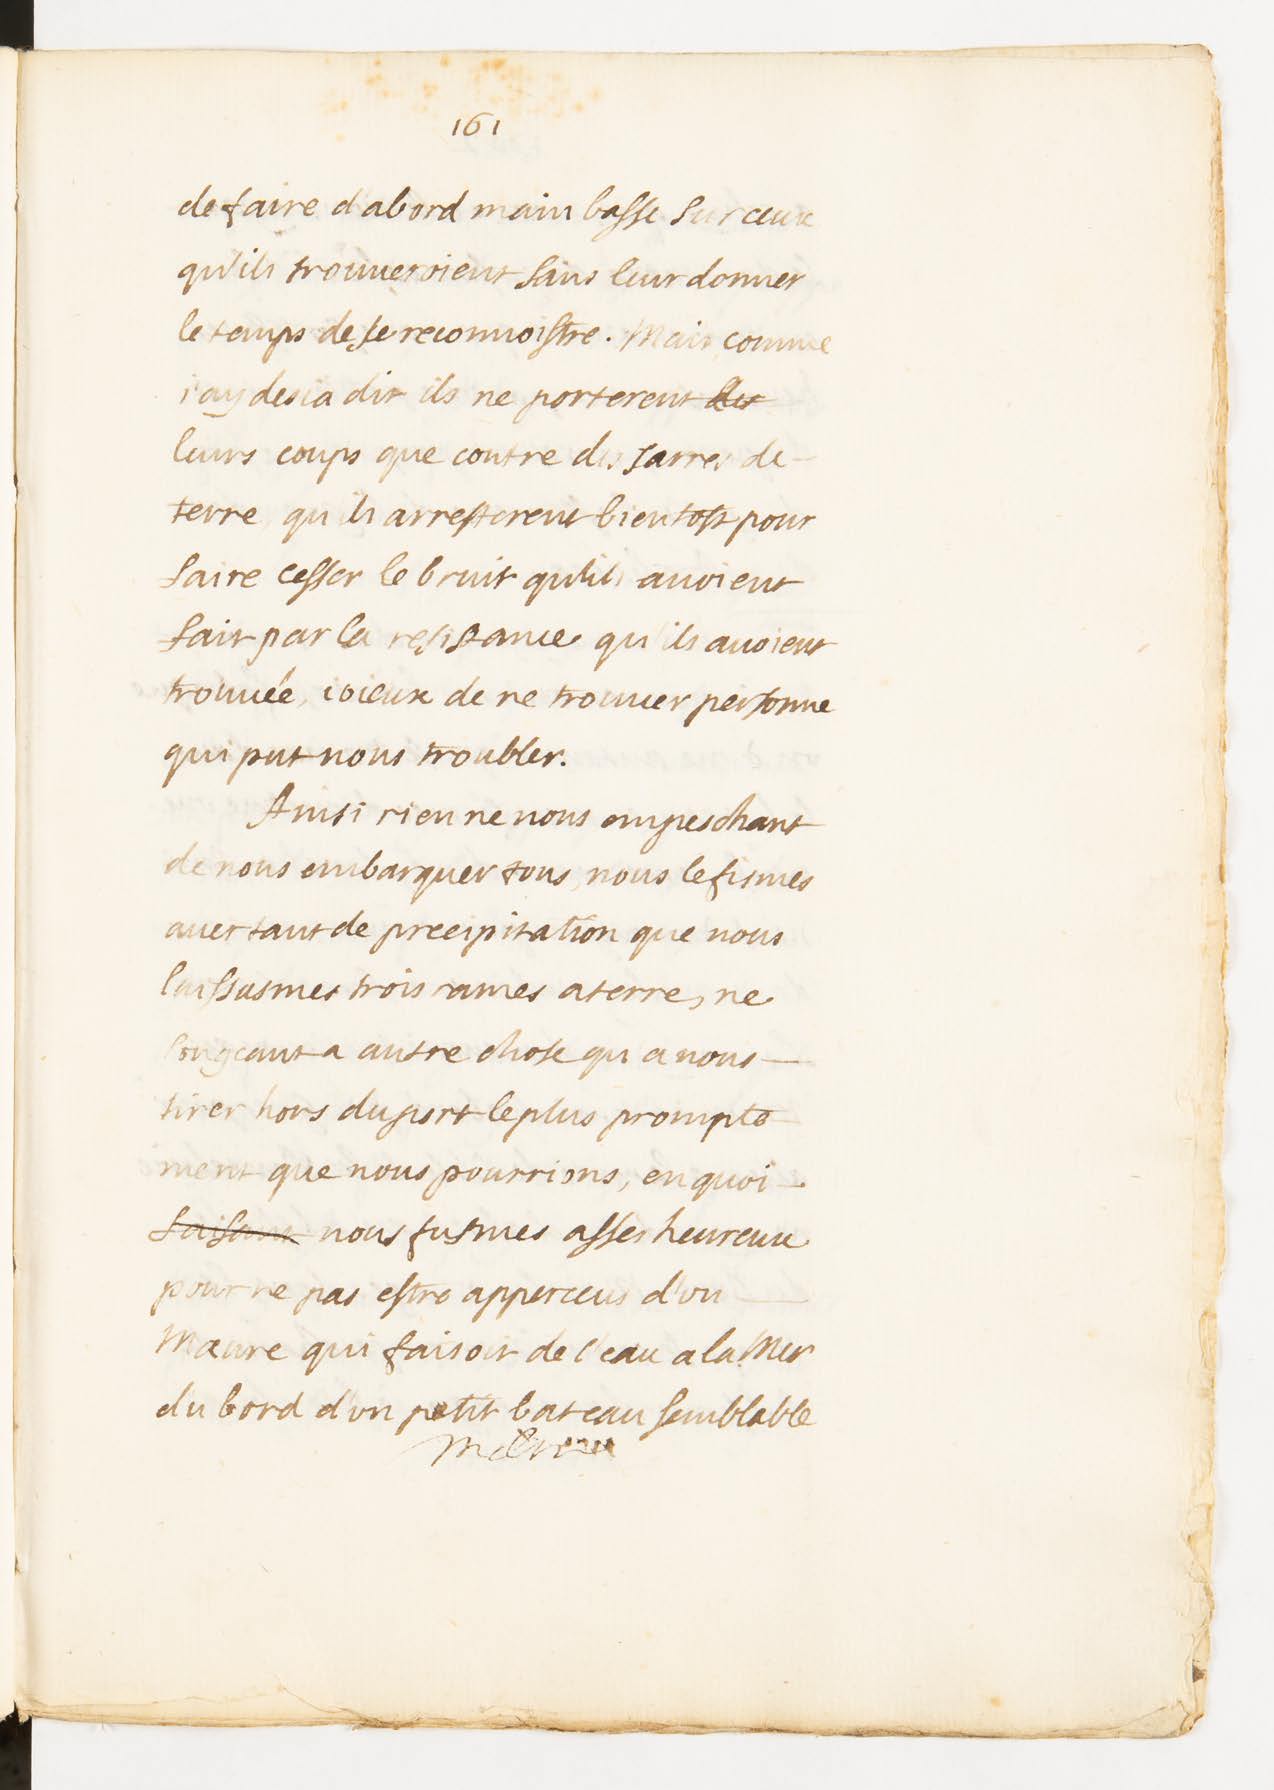 161
de faire d'abord main basse sur ceux
qu'ils trouueroient sans leur donner
le temps de se reconnoistre. Mais comme
i'ay desia dit ils ne porterent des
leurs coups que contre des Jarres de
terre, qu'ils arresterent bientost pour
faire cesser le bruit qu'ils auoient
fait par la resistance qu'ils auoient
trouuée, ioieux de ne trouuer personne
qui put nous troubler.
Ainsi rien ne nous empeschant
de nous embarquer tous, nous le fismes
auec tant de precipitation que nous
laissasmes trois rames a terre, ne
songeant a autre chose qu'a nous
tirer hors du port le plus prompte
ment que nous pourrions, en quoi
faisant nous fusmes asses heureux
pour ne pas estre apperceus d'vn
Maure qui faisoit de l'eau a la Mer
du bord d'vn petit bateau semblable